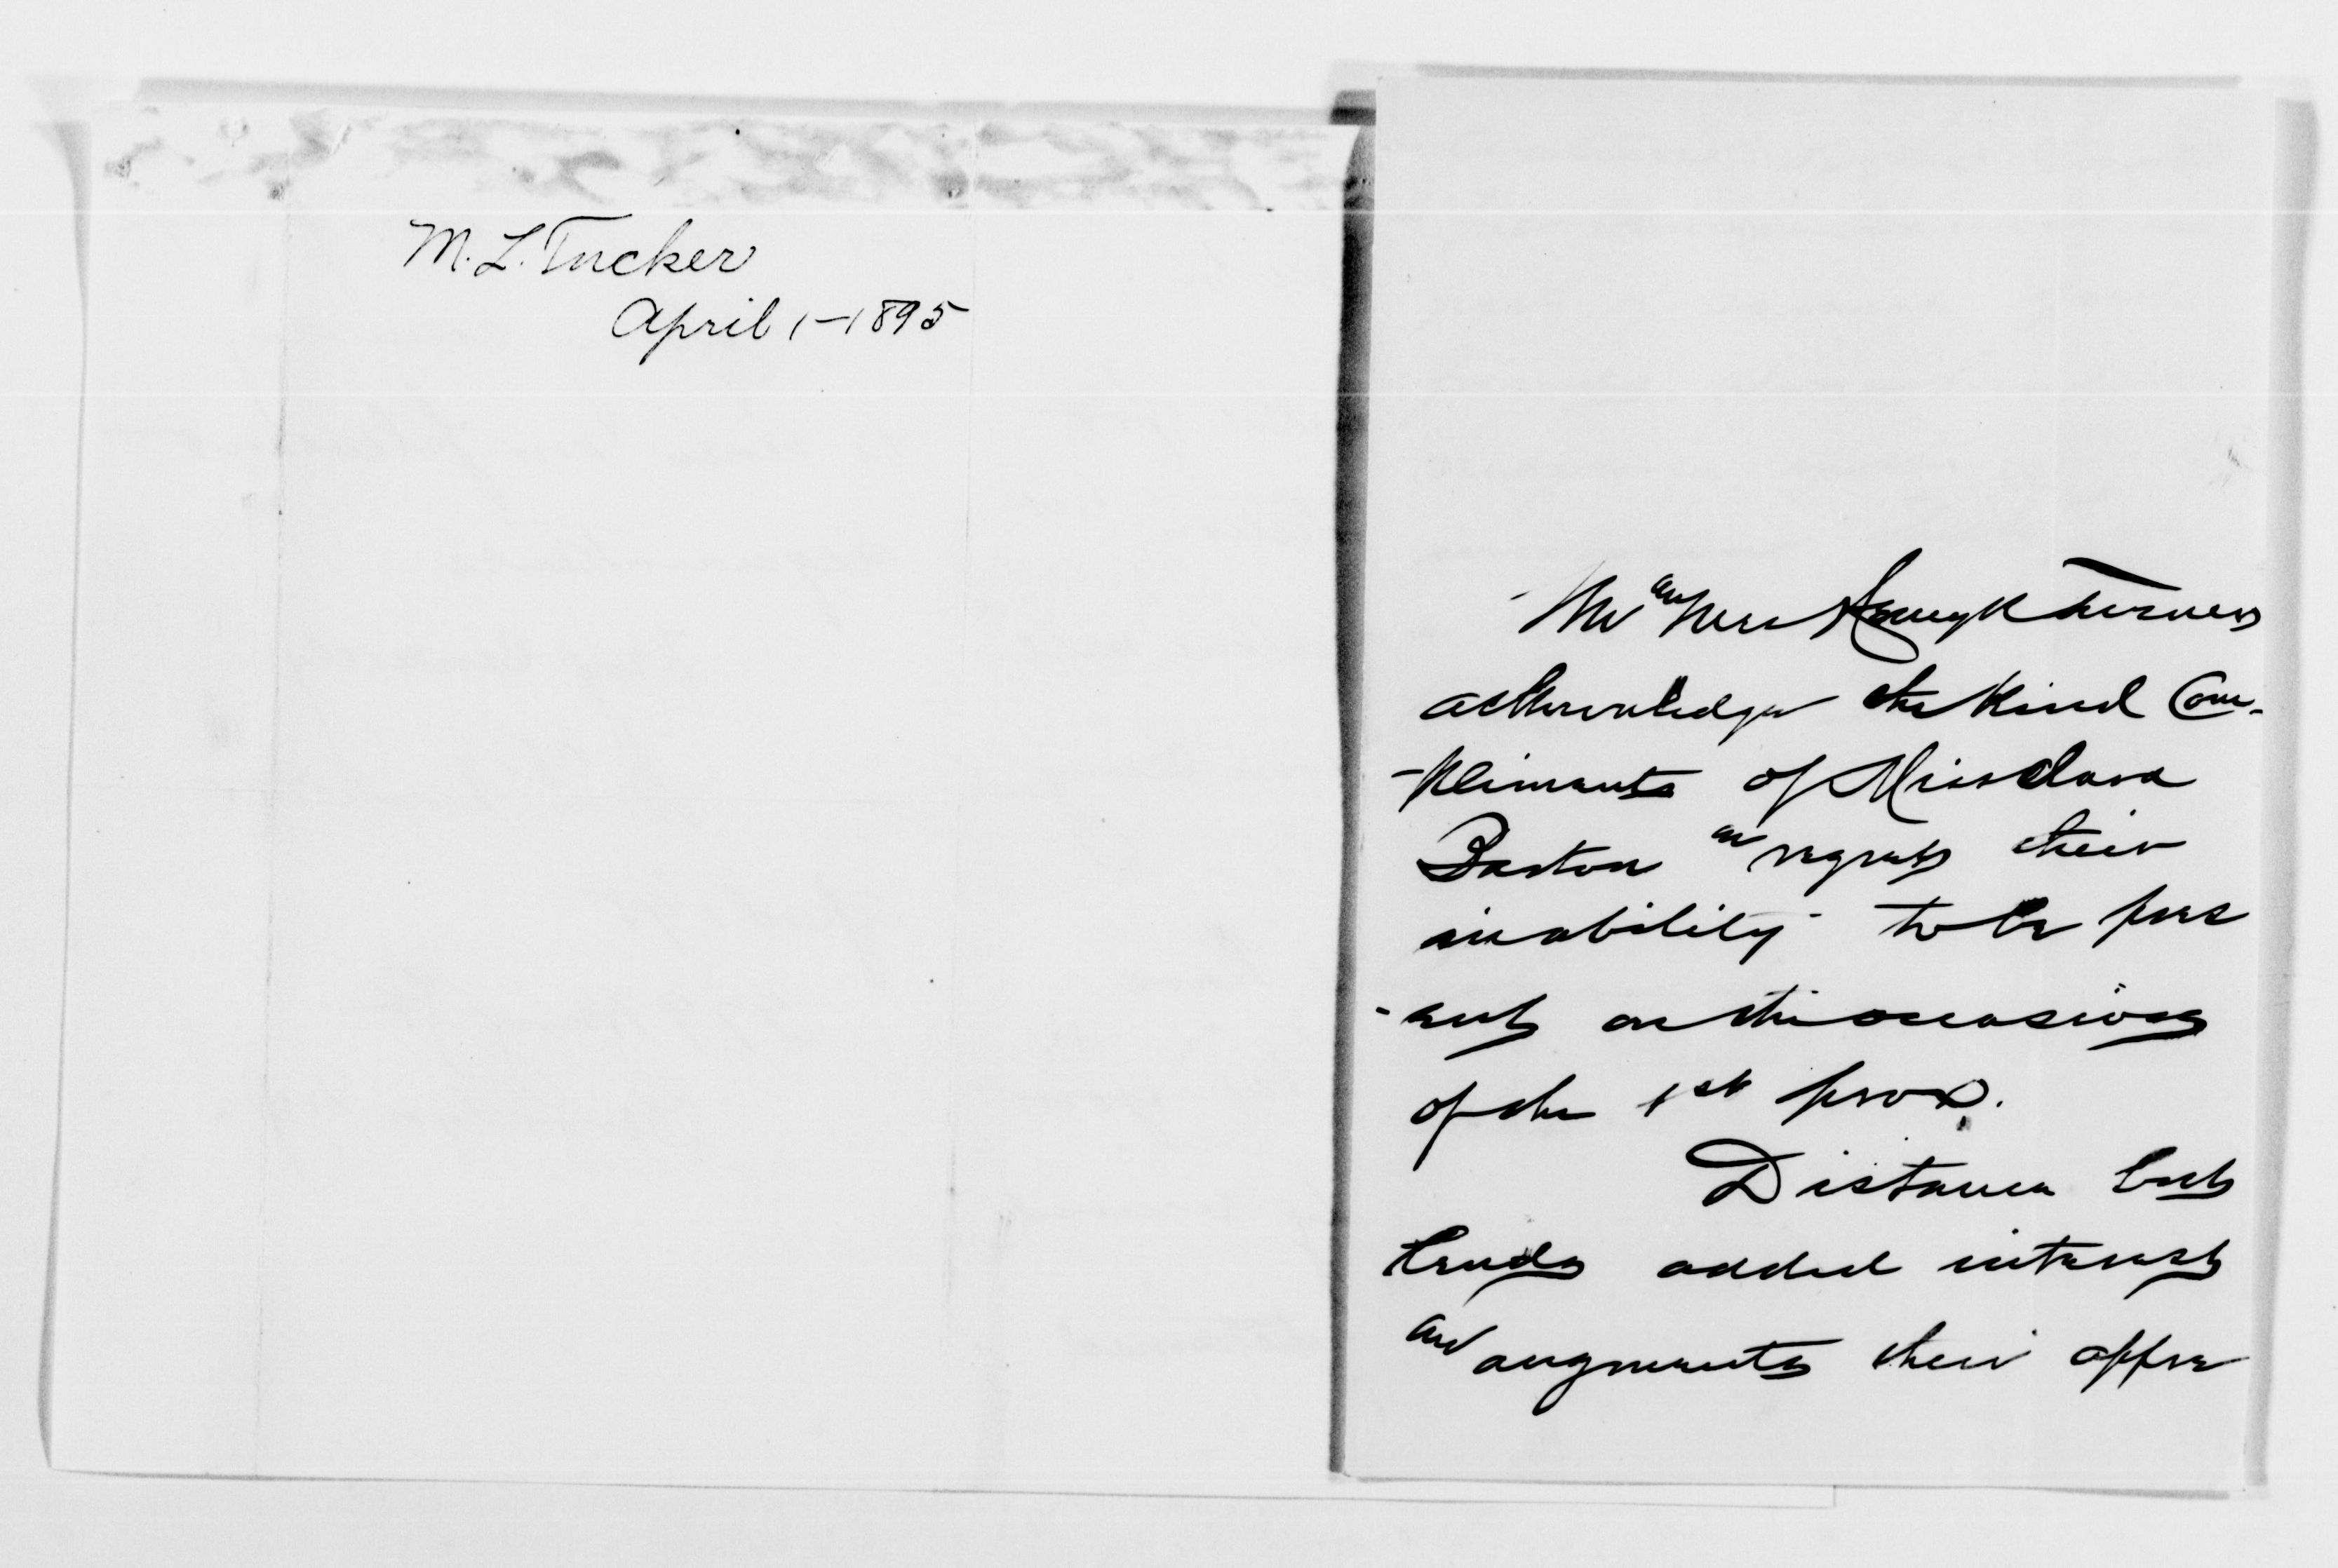 M. L. Tucker
April 1-1895
Mr and Mrs Turner
acknowledge the kind Com-
-pliments of Miss Clara
Barton and regrets their
inability to be pres
-ent on the occasion
of the 1st prox.
Distance but
lends added interest
and augments their appre